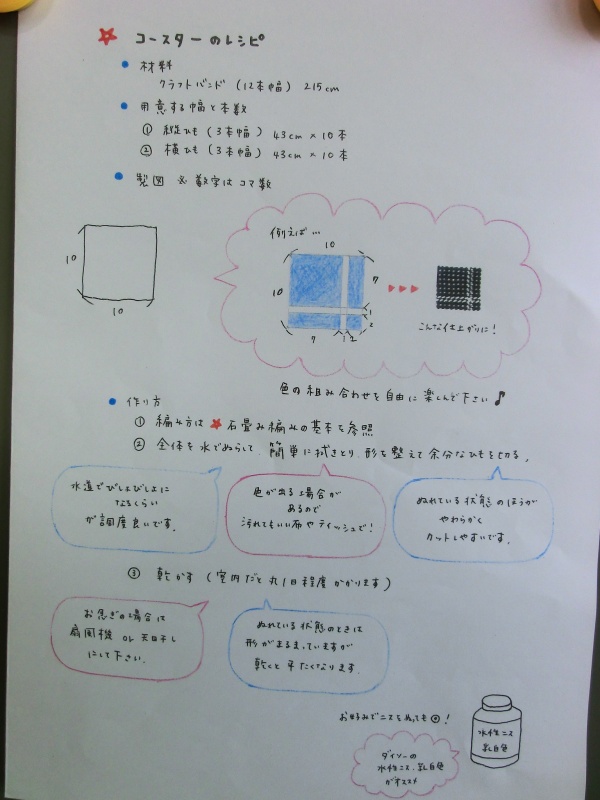 コースターのレシピ
材料
クラフトバンド (12本幅) 215cm
用意する幅と本数
① 縦ひも (3本幅) 43cm × 10本
② 横ひも (3本幅) 43cm × 10本
製図 ※ 数字はコマ数
例えば…
10
10
10
10
7
1
2
7
1
2
こんな仕上がりに!
色の組み合わせを自由に楽しんで下さい♪
作り方
① 編み方は★石畳み編みの基本を参照
② 全体を水でぬらして、簡単に拭きとり、形を整えて余分なひもを切る。
水道でびしょびしょに
なるくらい
が調度良いです。
色が出る場合が
あるので
汚れてもいい布やティッシュで!
ぬれている状態のほうが
やわらかく
カットしやすいです。
③ 乾かす (室内だと丸1日程度かかります)
お急ぎの場合は
扇風機 or 天日干し
にして下さい。
ぬれている状態のときは
形がまるまっていますが
乾くと平たくなります。
お好みでニスをぬっても◎!
水性ニス
乳白色
ダイソーの
水性ニス、乳白色
がオススメ